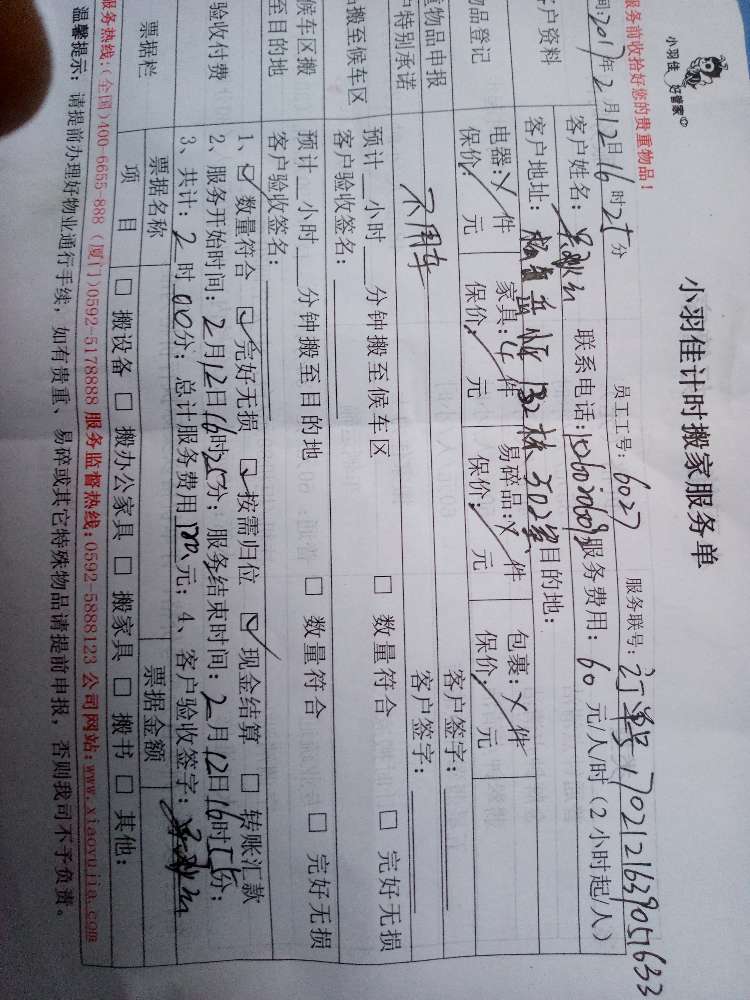 小羽佳 好管家
小羽佳计时搬家服务单
服务前收拾好您的贵重物品！
员工工号：6027 服务联号：订单号1702121639051633
间2017年2月12日16时25分
户资料 客户姓名： 联系电话： 服务费用：60元/人/时（2小时起/人）
客户地址： 132栋302室 目的地：
物品登记 电器：×件 家具：4件 易碎品：×件 包裹：×件
保价：/元 保价：/元 保价：/元 保价：/元
重物品申报 客户签字：
户特别承诺 不用车 客户签字：
搬至候车区 预计__小时__分钟搬至候车区 □ 数量符合 □ 完好无损
客户验收签名：
候车区搬至目的地 预计__小时__分钟搬至目的地 □ 数量符合 □ 完好无损
客户验收签名：
验收付费 1、☑ 数量符合 ☑ 完好无损 ☑ 按需归位 ☑ 现金结算 □ 转账汇款
2、服务开始时间：2月12日16时25分；服务结束时间：2月12日 时 分；
3、共计：2时00分；总计服务费用 元；4、客户验收签字：
票据栏 票据名称 票据金额
项 目 □ 搬设备 □ 搬办公家具 □ 搬家具 □ 搬书 □ 其他：
服务热线：（全国）400-6655-888（厦门）0592-5178888 服务监督热线：0592-5888123 公司网站：www.xiaoyujia.com
温馨提示：请提前办理好物业通行手续，如有贵重、易碎或其它特殊物品请提前申报，否则我司不予负责。